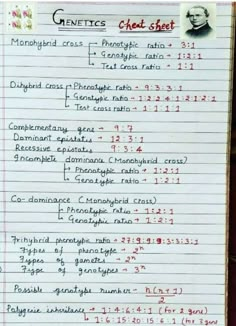 GENETICS cheat sheet
Monohybrid cross → Phenotypic ratio → 3:1
→ Genotypic ratio → 1:2:1
→ Test cross ratio → 1:1
Dihybrid cross → Phenotypic ratio → 9:3:3:1
→ Genotypic ratio → 1:2:2:4:1:2:1:2:1
→ Test cross ratio → 1:1:1:1
Complementary gene → 9:7
Dominant epistasis → 12:3:1
Recessive epistasis → 9:3:4
Incomplete dominance (Monohybrid cross)
→ Phenotypic ratio → 1:2:1
→ Genotypic ratio → 1:2:1
Co-dominance (Monohybrid cross)
→ Phenotypic ratio → 1:2:1
→ Genotypic ratio → 1:2:1
Trihybrid phenotypic ratio → 27:9:9:9:3:3:3:1
Types of phenotype → 2ⁿ
Types of gametes → 2ⁿ
Types of genotypes → 3ⁿ
Possible genotype number → n(n+1)
2
Polygenic inheritance → 1:4:6:4:1 (for 2 gene)
1:6:15:20:15:6:1 (for 3 gene)